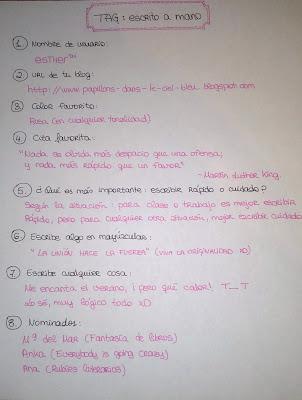 TAG: escrito a mano
1. Nombre de usuario:
esther™
2. URL de tu blog:
http://www.papillons-dans-le-ciel-bleu.blogspot.com
3. Color favorito:
Rosa (en cualquier tonalidad)
4. Cita favorita:
"Nada se olvida más despacio que una ofensa;
y nada más rápido que un favor"
- Martin Luther King.
5. ¿Qué es más importante: escribir rápido o cuidado?
Según la situación: para clase o trabajo es mejor escribir
rápido, pero para cualquier otra situación, mejor escribir cuidado
6. Escribe algo en mayúsculas:
"LA UNIÓN HACE LA FUERZA" (VIVA LA ORIGINALIDAD XD)
7. Escribe cualquier cosa:
Me encanta el verano, ¡pero qué calor! T_T
Lo sé, muy lógico todo xD
8. Nominados:
Mª del Mar (Fantasía de libros)
Anka (Everybody is going crazy)
Ana (Rubíes literarios)